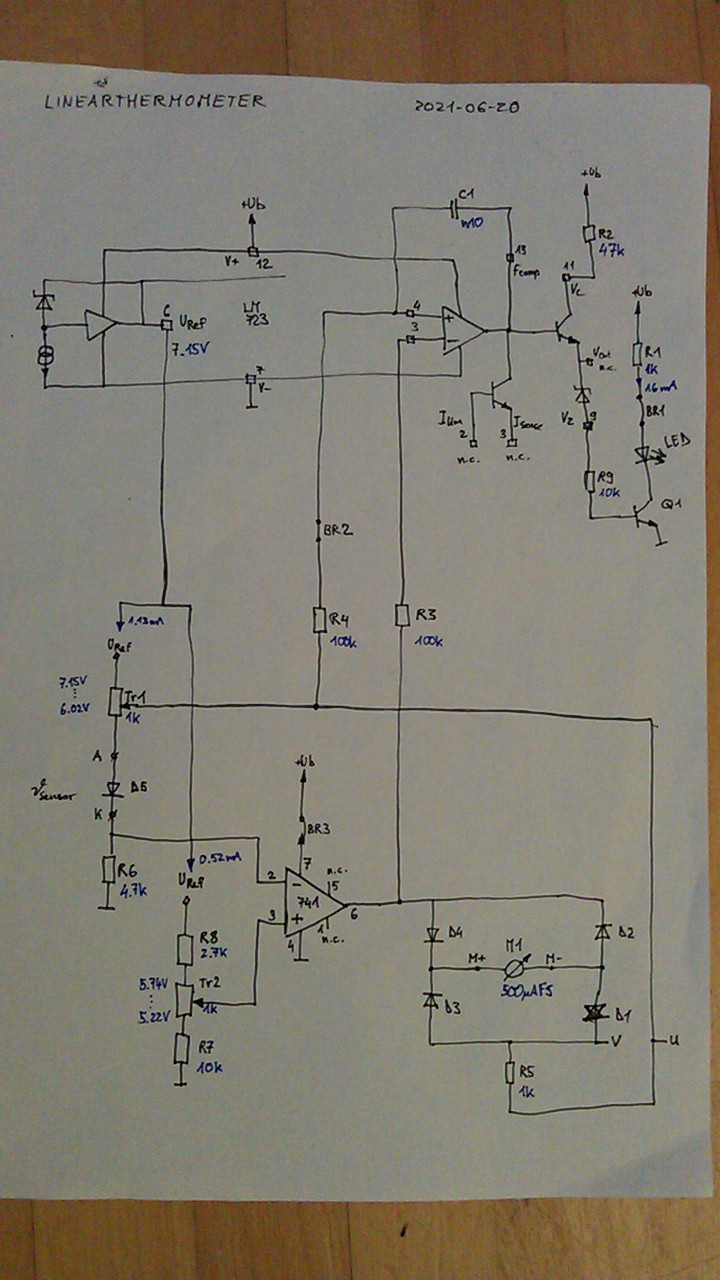 LINEARTHERMOMETER
2021-06-20
+Ub
C1
+Ub
R2
47k
V+ 12
13
Fcomp
11
Vc
+Ub
6
URef
7.15V
LM
723
4
3
+
−
VOut
n.c.
R1
1k
16mA
BR1
LED
7
V-
ILim
2
n.c.
ISense
3
n.c.
VZ 9
R9
10k
Q1
BR2
R4
100k
R3
100k
1.13mA
URef
7.15V
⋮
6.02V
Tr1
1k
A
D5
ϑSensor
K
+Ub
BR3
R6
4.7k
0.52mA
URef
7
n.c.
5
2
−
741
3
+
6
4
1
n.c.
R8
2.7k
5.74V
⋮
5.22V
Tr2
1k
R7
10k
D4
D2
M+ M1 M-
500µAFS
D3
D1
V
U
R5
1k